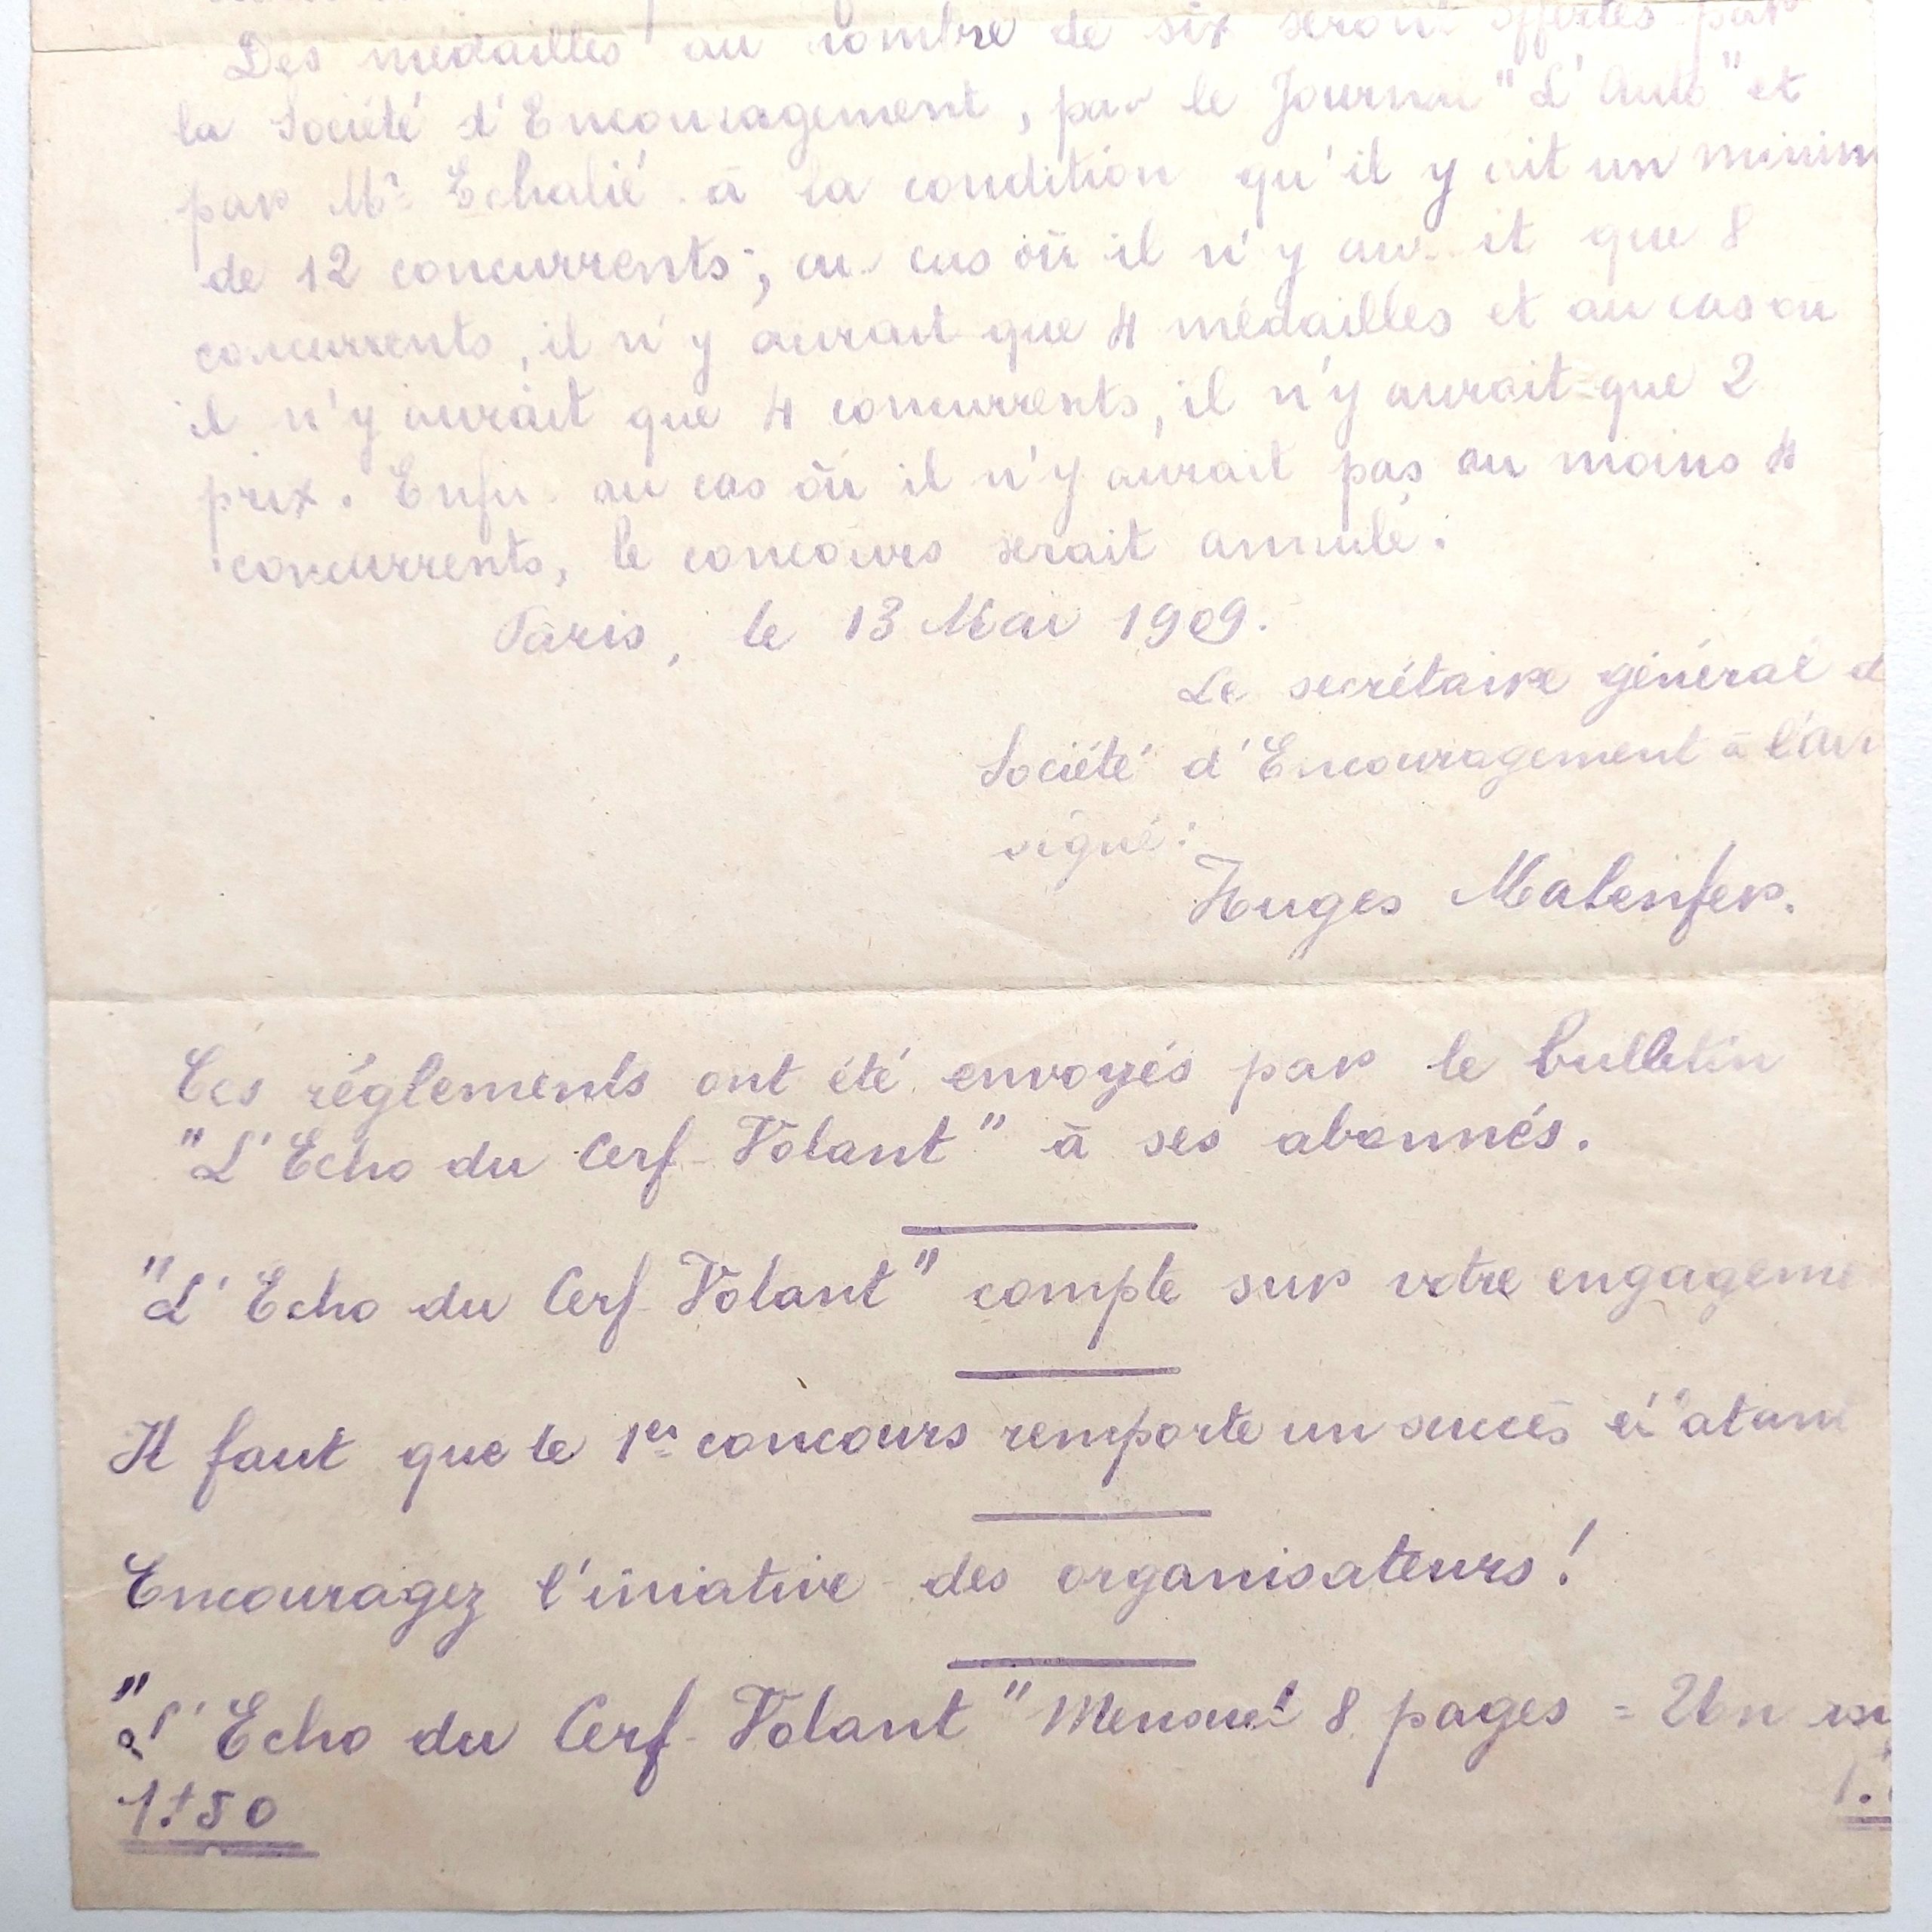 Des médailles au nombre de six seront offertes par
la Société d'Encouragement, par le Journal "L'Auto" et
par Mr Echalié à la condition qu'il y ait un minim
de 12 concurrents; au cas où il n'y aurait que 8
concurrents, il n'y aurait que 4 médailles et au cas où
il n'y aurait que 4 concurrents, il n'y aurait que 2
prix. Enfin au cas où il n'y aurait pas au moins 4
concurrents, le concours serait annulé.
Paris, le 13 Mai 1909.
Le secrétaire général d
Société d'Encouragement à l'Avi
signé:
Huges Malenfer.
Ces réglements ont été envoyés par le bulletin
"L'Echo du Cerf-Volant" à ses abonnés.
"L'Echo du Cerf-Volant" compte sur votre engageme
Il faut que le 1er concours remporte un succès
Encouragez l'iniative des organisateurs!
"L'Echo du Cerf-Volant" Mensuel 8 pages = Un an
1f50